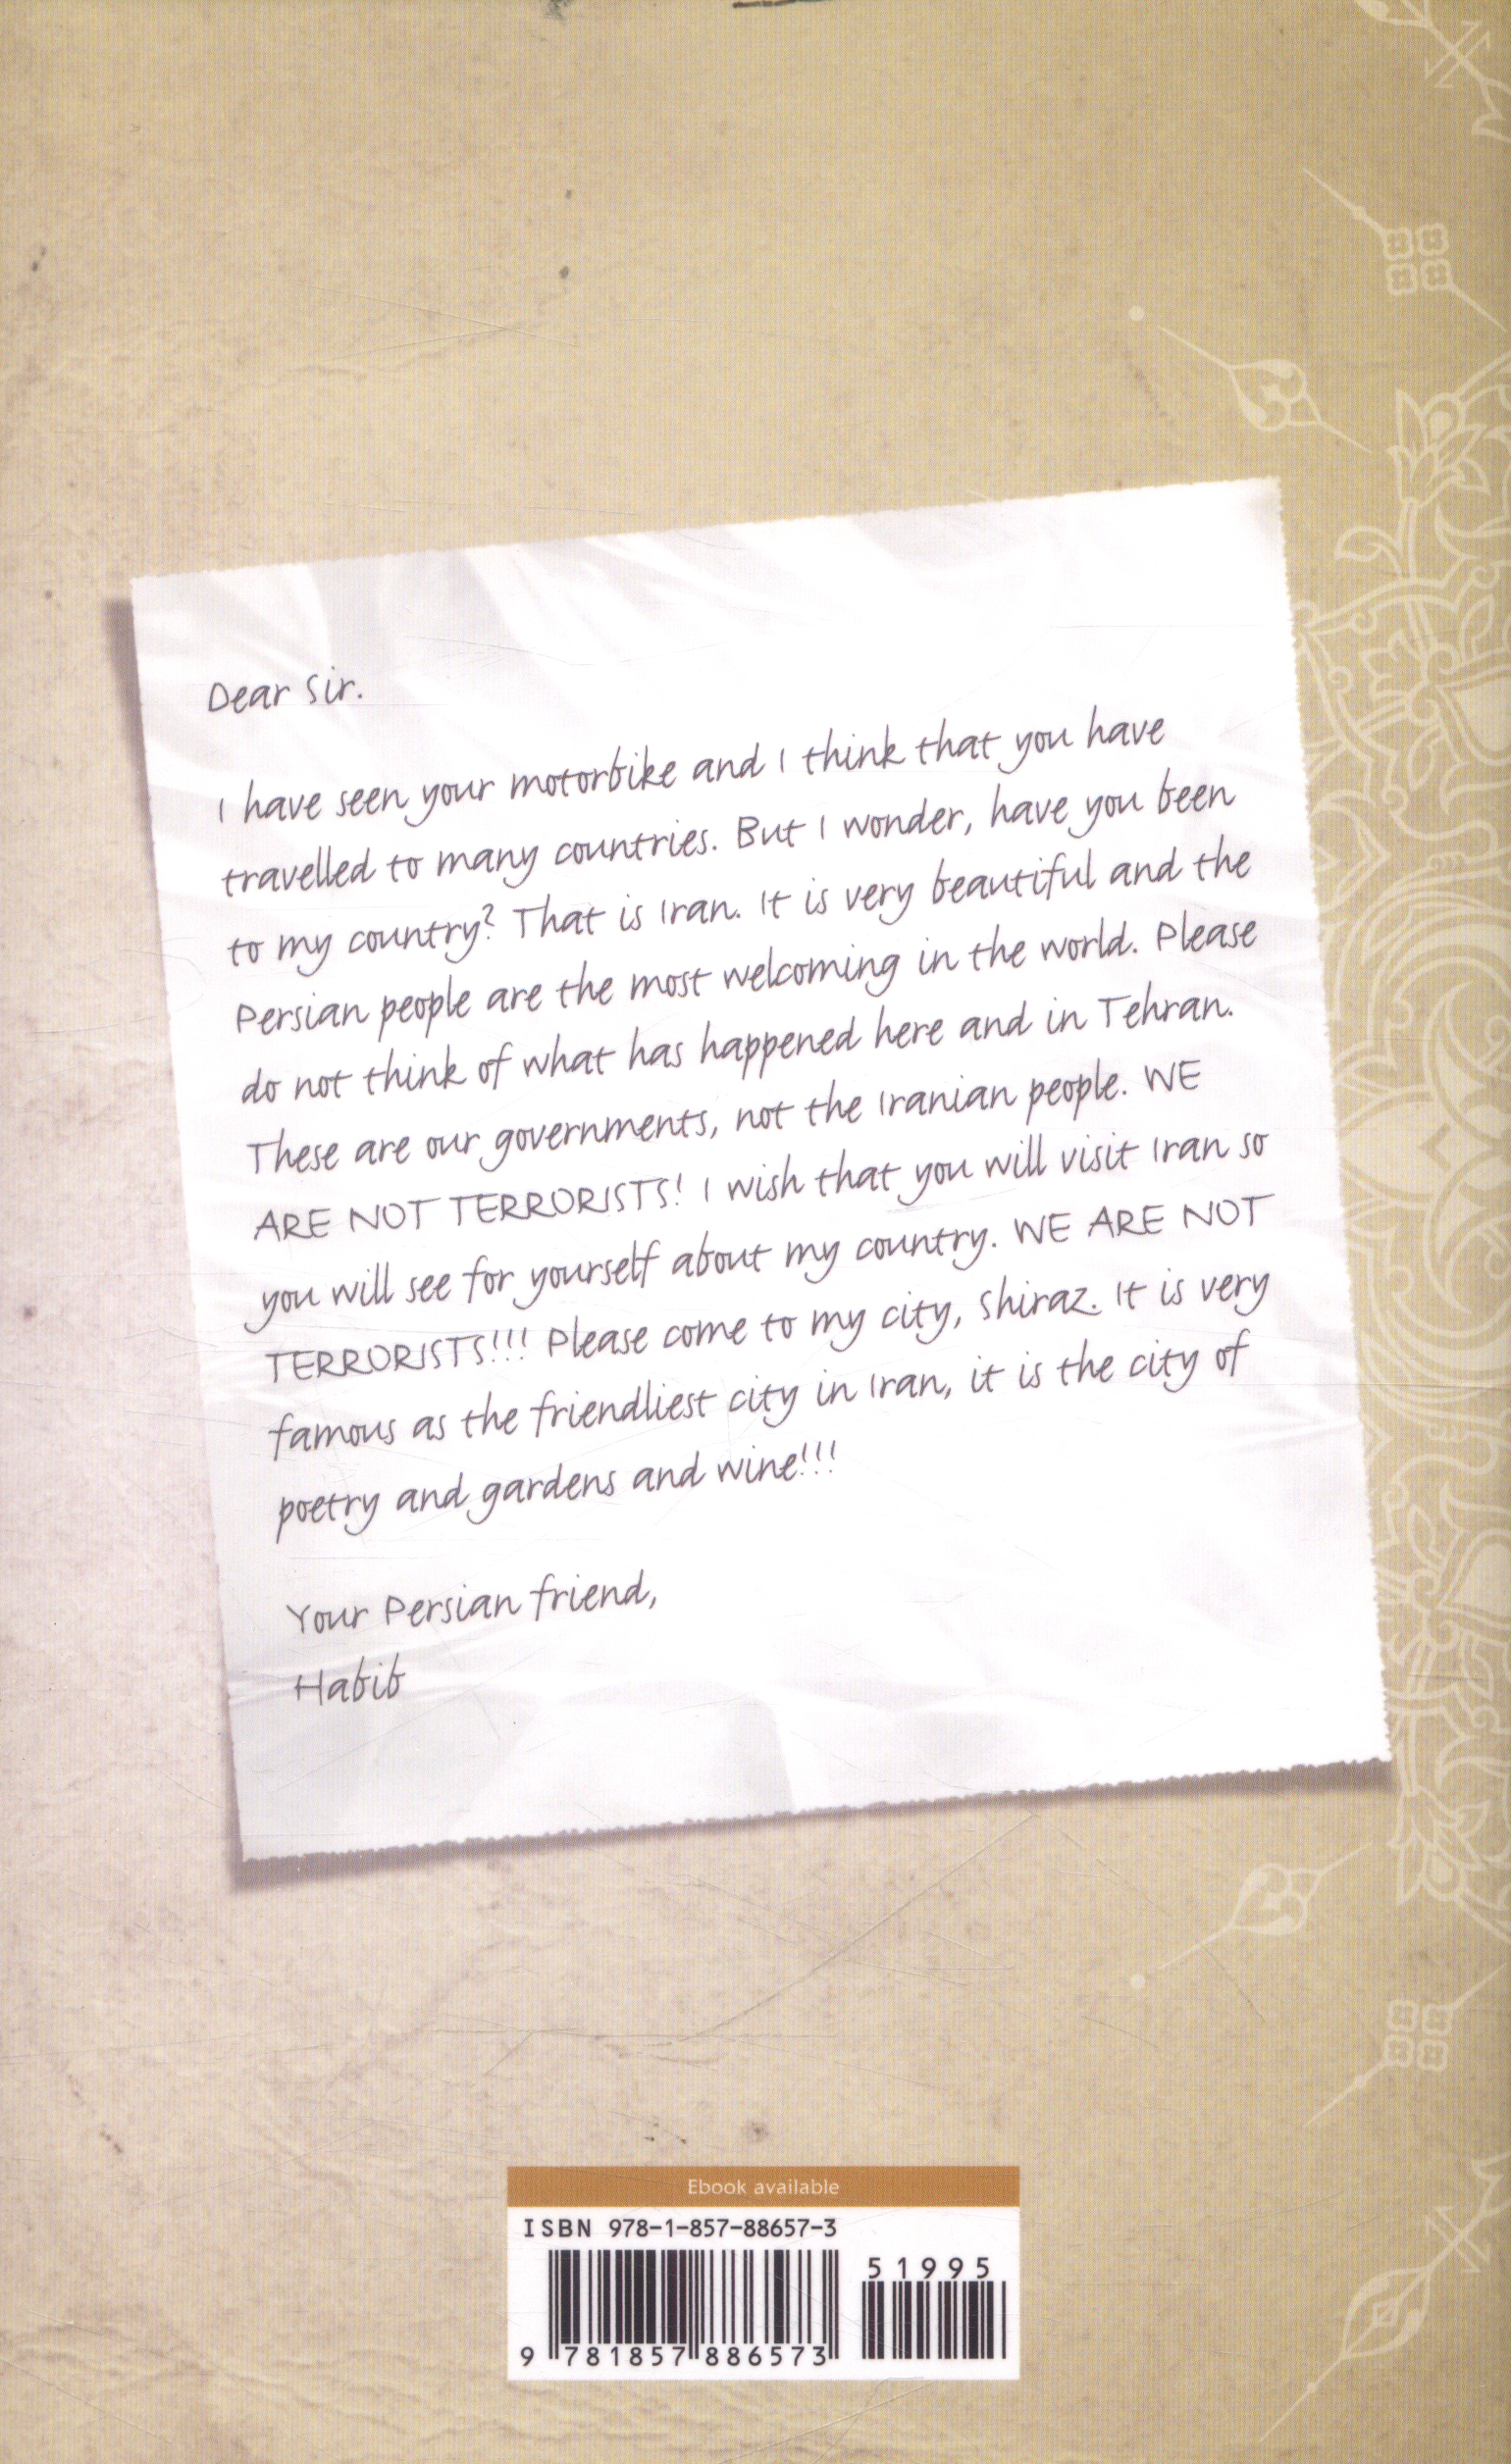 Dear Sir.
I have seen your motorbike and I think that you have
travelled to many countries. But I wonder, have you been
to my country? That is Iran. It is very beautiful and the
Persian people are the most welcoming in the world. Please
do not think of what has happened here and in Tehran.
These are our governments, not the Iranian people. WE
ARE NOT TERRORISTS! I wish that you will visit Iran so
you will see for yourself about my country. WE ARE NOT
TERRORISTS!!! Please come to my city, Shiraz. It is very
famous as the friendliest city in Iran, it is the city of
poetry and gardens and wine!!!
Your Persian friend,
Habib
Ebook available
ISBN 978-1-857-88657-3
51995
9 781857 886573